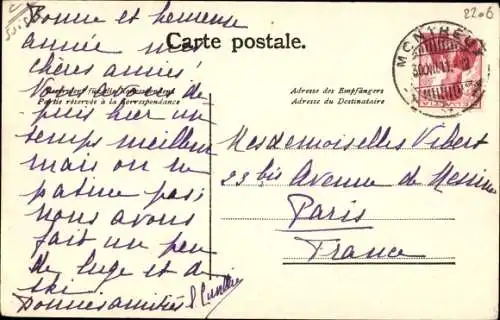 2206
Carte postale.
Bonne et heureuse
année mes
chères amies
Nous avons de
puis hier un
temps meilleur
mais on ne
patine pas;
nous avons
fait un peu
de luge et de
ski
Bonnes amitiés
Partie réservée à la Correspondance
Adresse des Empfängers
Adresse du Destinataire
MONTREUX
Mesdemoiselles Vibert
23 bis Avenue de Messine
Paris
France